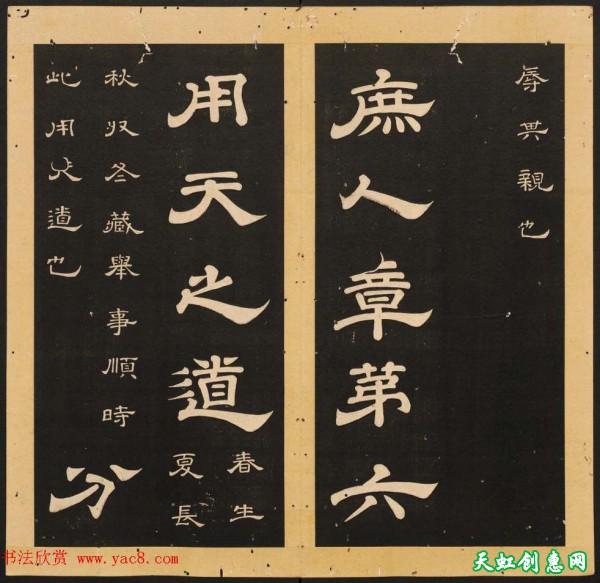 辱其親也
庶人章第六
用天之道
春生
夏長
秋收冬藏舉事順時
此用天道也
分
书法欣赏 www.yac8.com
天虹创惠网